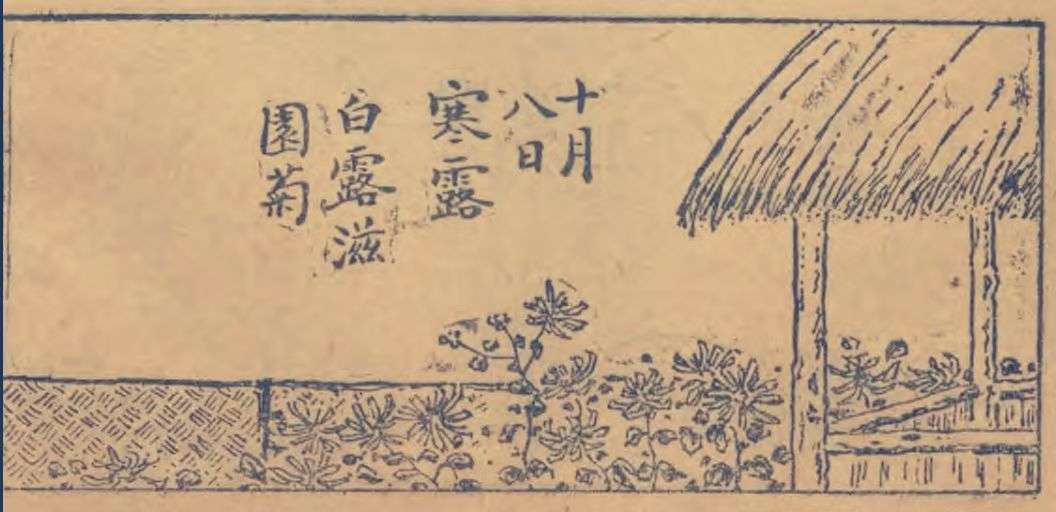 十月
八日
寒露
白露滋
園菊